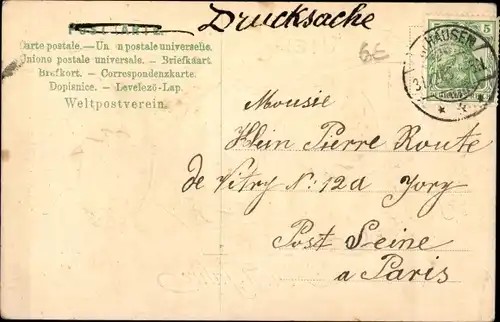 Drucksache
POSTKARTE
Carte postale. — Union postale universelle.
Unione postale universale. — Briefkaart.
Brefkort. — Correspondenzkarte.
Dopisnice. — Levelező-Lap.
Weltpostverein.
6E
5
HAUSEN
Mousie
Klein Pierre Route
de Vitry N: 12a Jory
Post Seine
a Paris